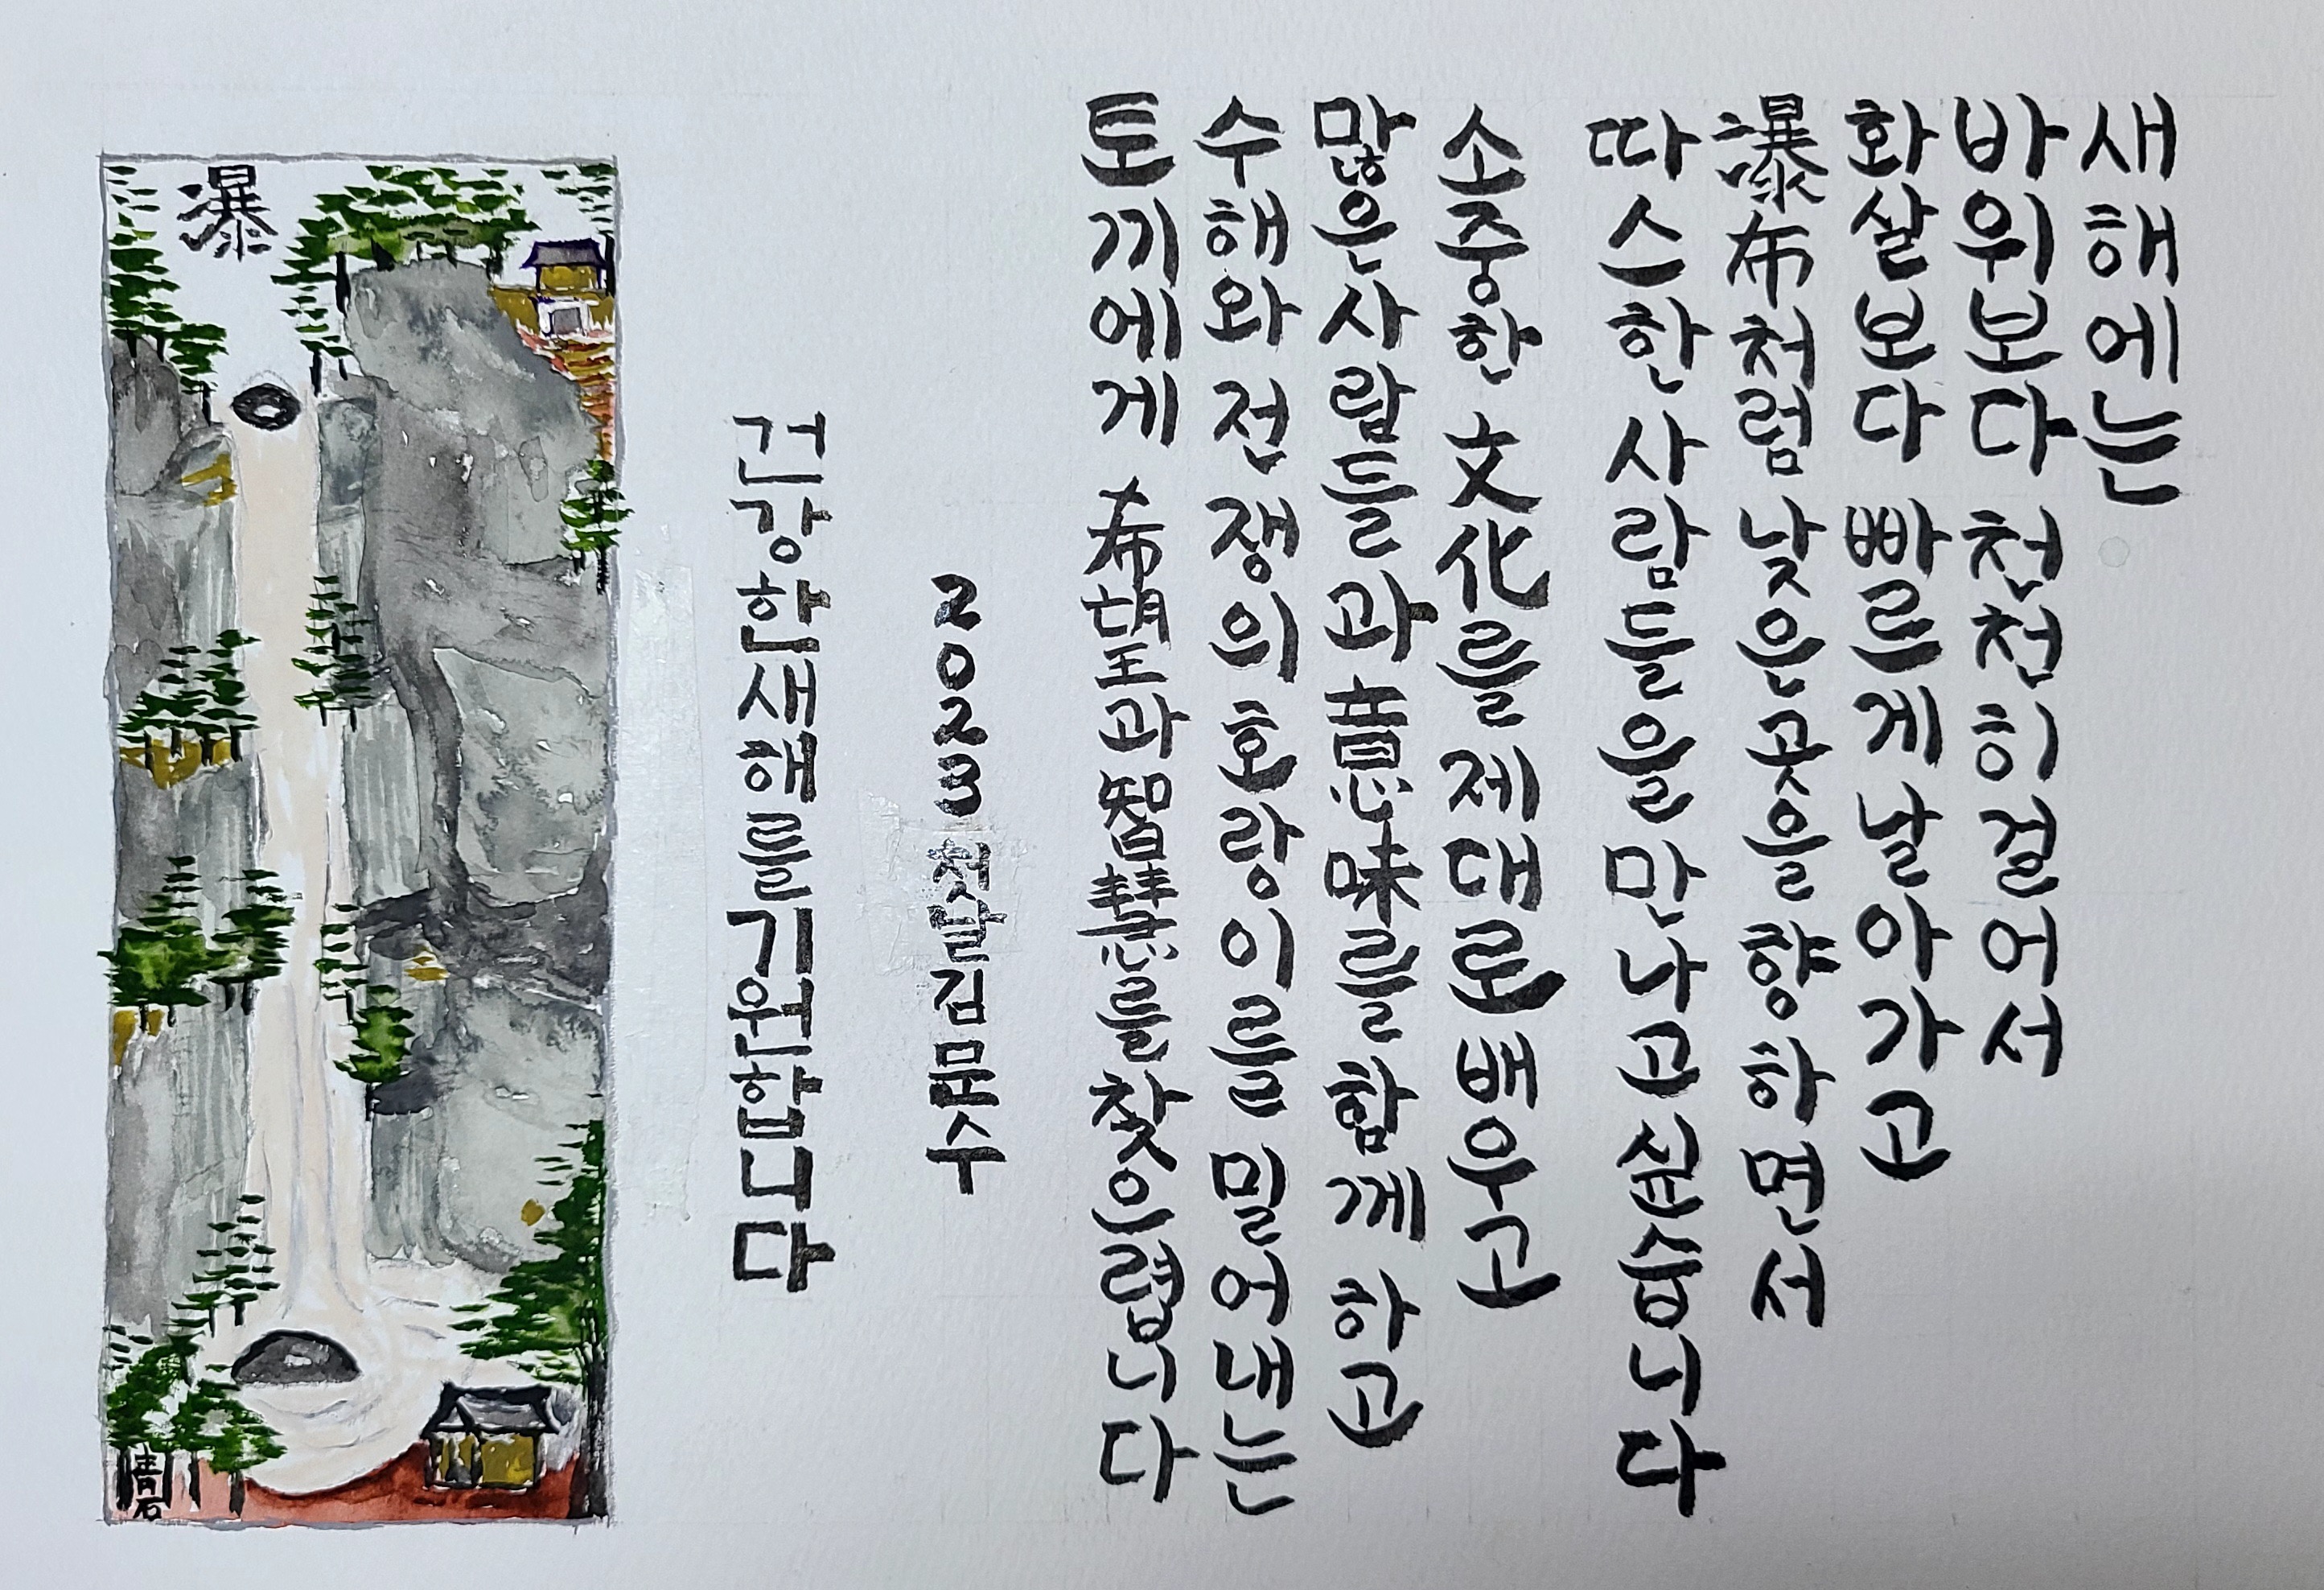 새해에는
바위보다 천천히 걸어서
화살보다 빠르게 날아가고
瀑布처럼 낮은곳을 향하면서
따스한 사람들을 만나고 싶습니다
소중한 文化를 제대로 배우고
많은사람들과 意味를 함께 하고
수해와 전쟁의 호랑이를 밀어내는
토끼에게 希望과 智慧를 찾으렵니다
2023 첫날 김문수
건강한 새해를 기원합니다
瀑
靑石